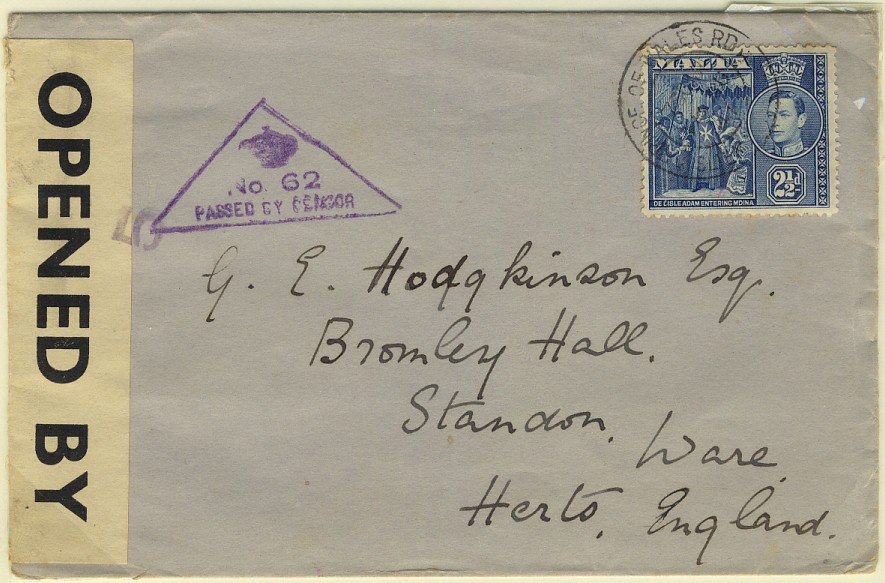 OPENED BY
No. 62
PASSED BY CENSOR
ALES RD
MALTA
DE L'ISLE ADAM ENTERING MDINA
2½d
G. E. Hodgkinson Esq.
Bromley Hall.
Standon, Ware,
Herts, England.